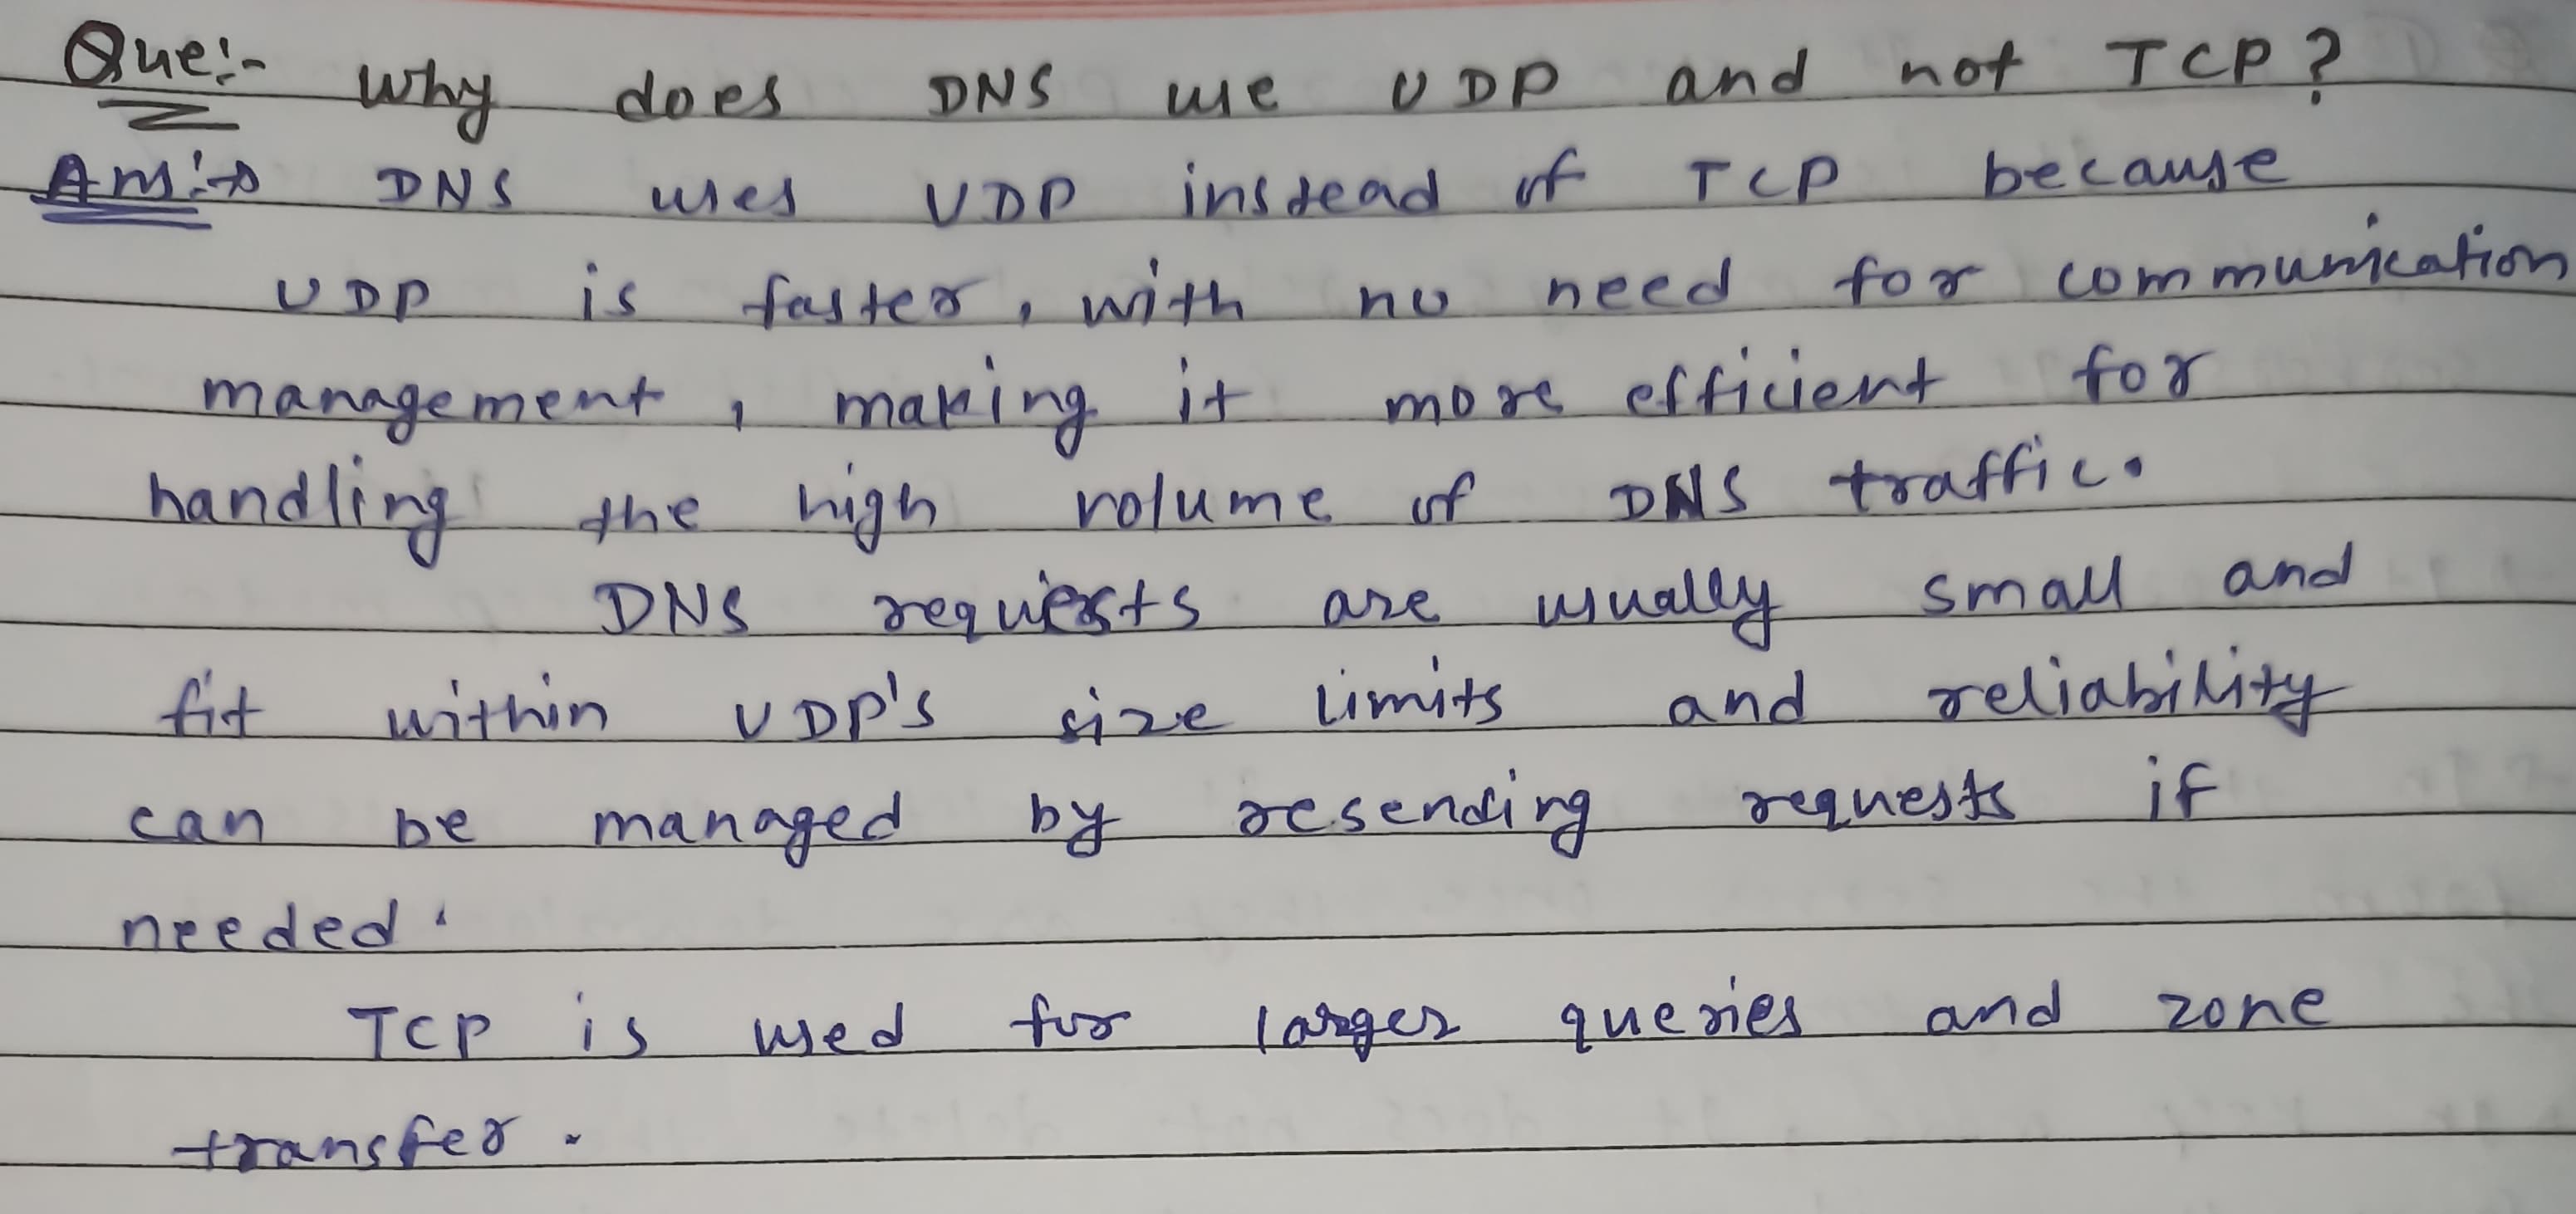 Que:- Why does DNS use UDP and not TCP?
Ans:→ DNS uses UDP instead of TCP because
UDP is faster, with no need for communication
management, making it more efficient for
handling the high volume of DNS traffic.
DNS requests are usually small and
fit within UDP's size limits and reliability
can be managed by resending requests if
needed.
TCP is used for larger queries and zone
transfer.